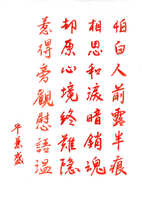 怕白人前露半痕
相思和淚暗銷魂
却原心境終難隐
蒽得旁觀慰語溫
平景盛